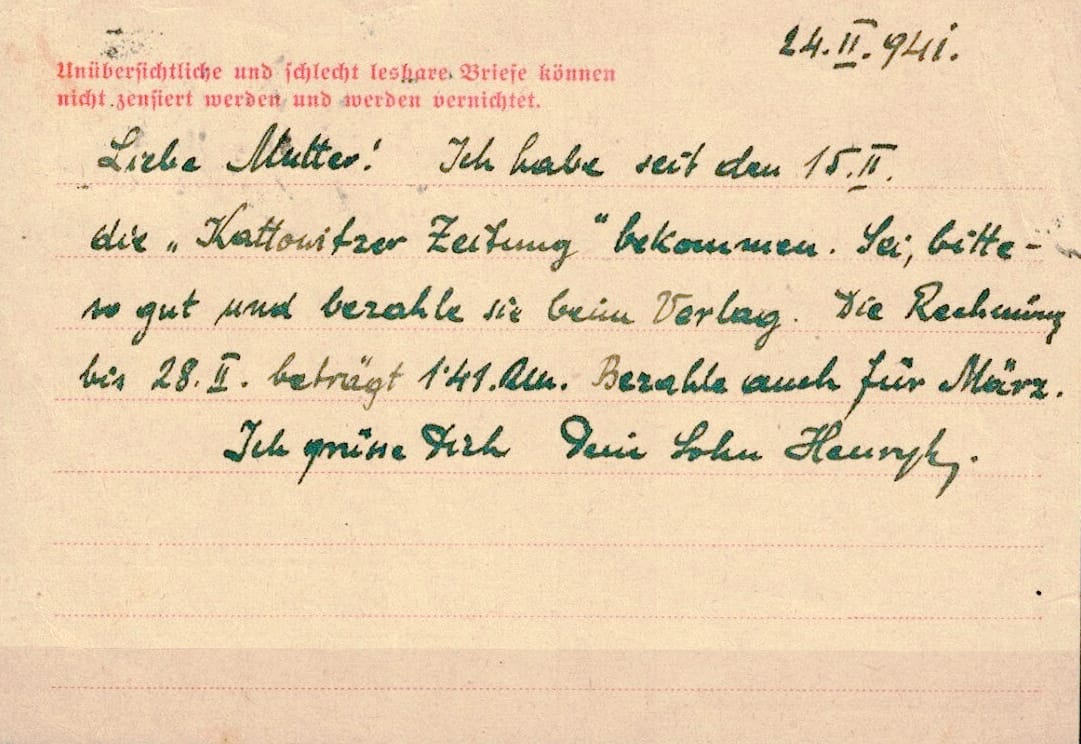 24.II.941.
Unübersichtliche und schlecht lesbare Briefe können
nicht zensiert werden und werden vernichtet.
Liebe Mutter! Ich habe seit den 15.II.
die „Kattowitzer Zeitung" bekommen. Sei, bitte -
so gut und bezahle sie beim Verlag. Die Rechnung
bis 28.II. beträgt 1'41.RM. Bezahle auch für März.
Ich grüsse Dich Dein Sohn Henryk.